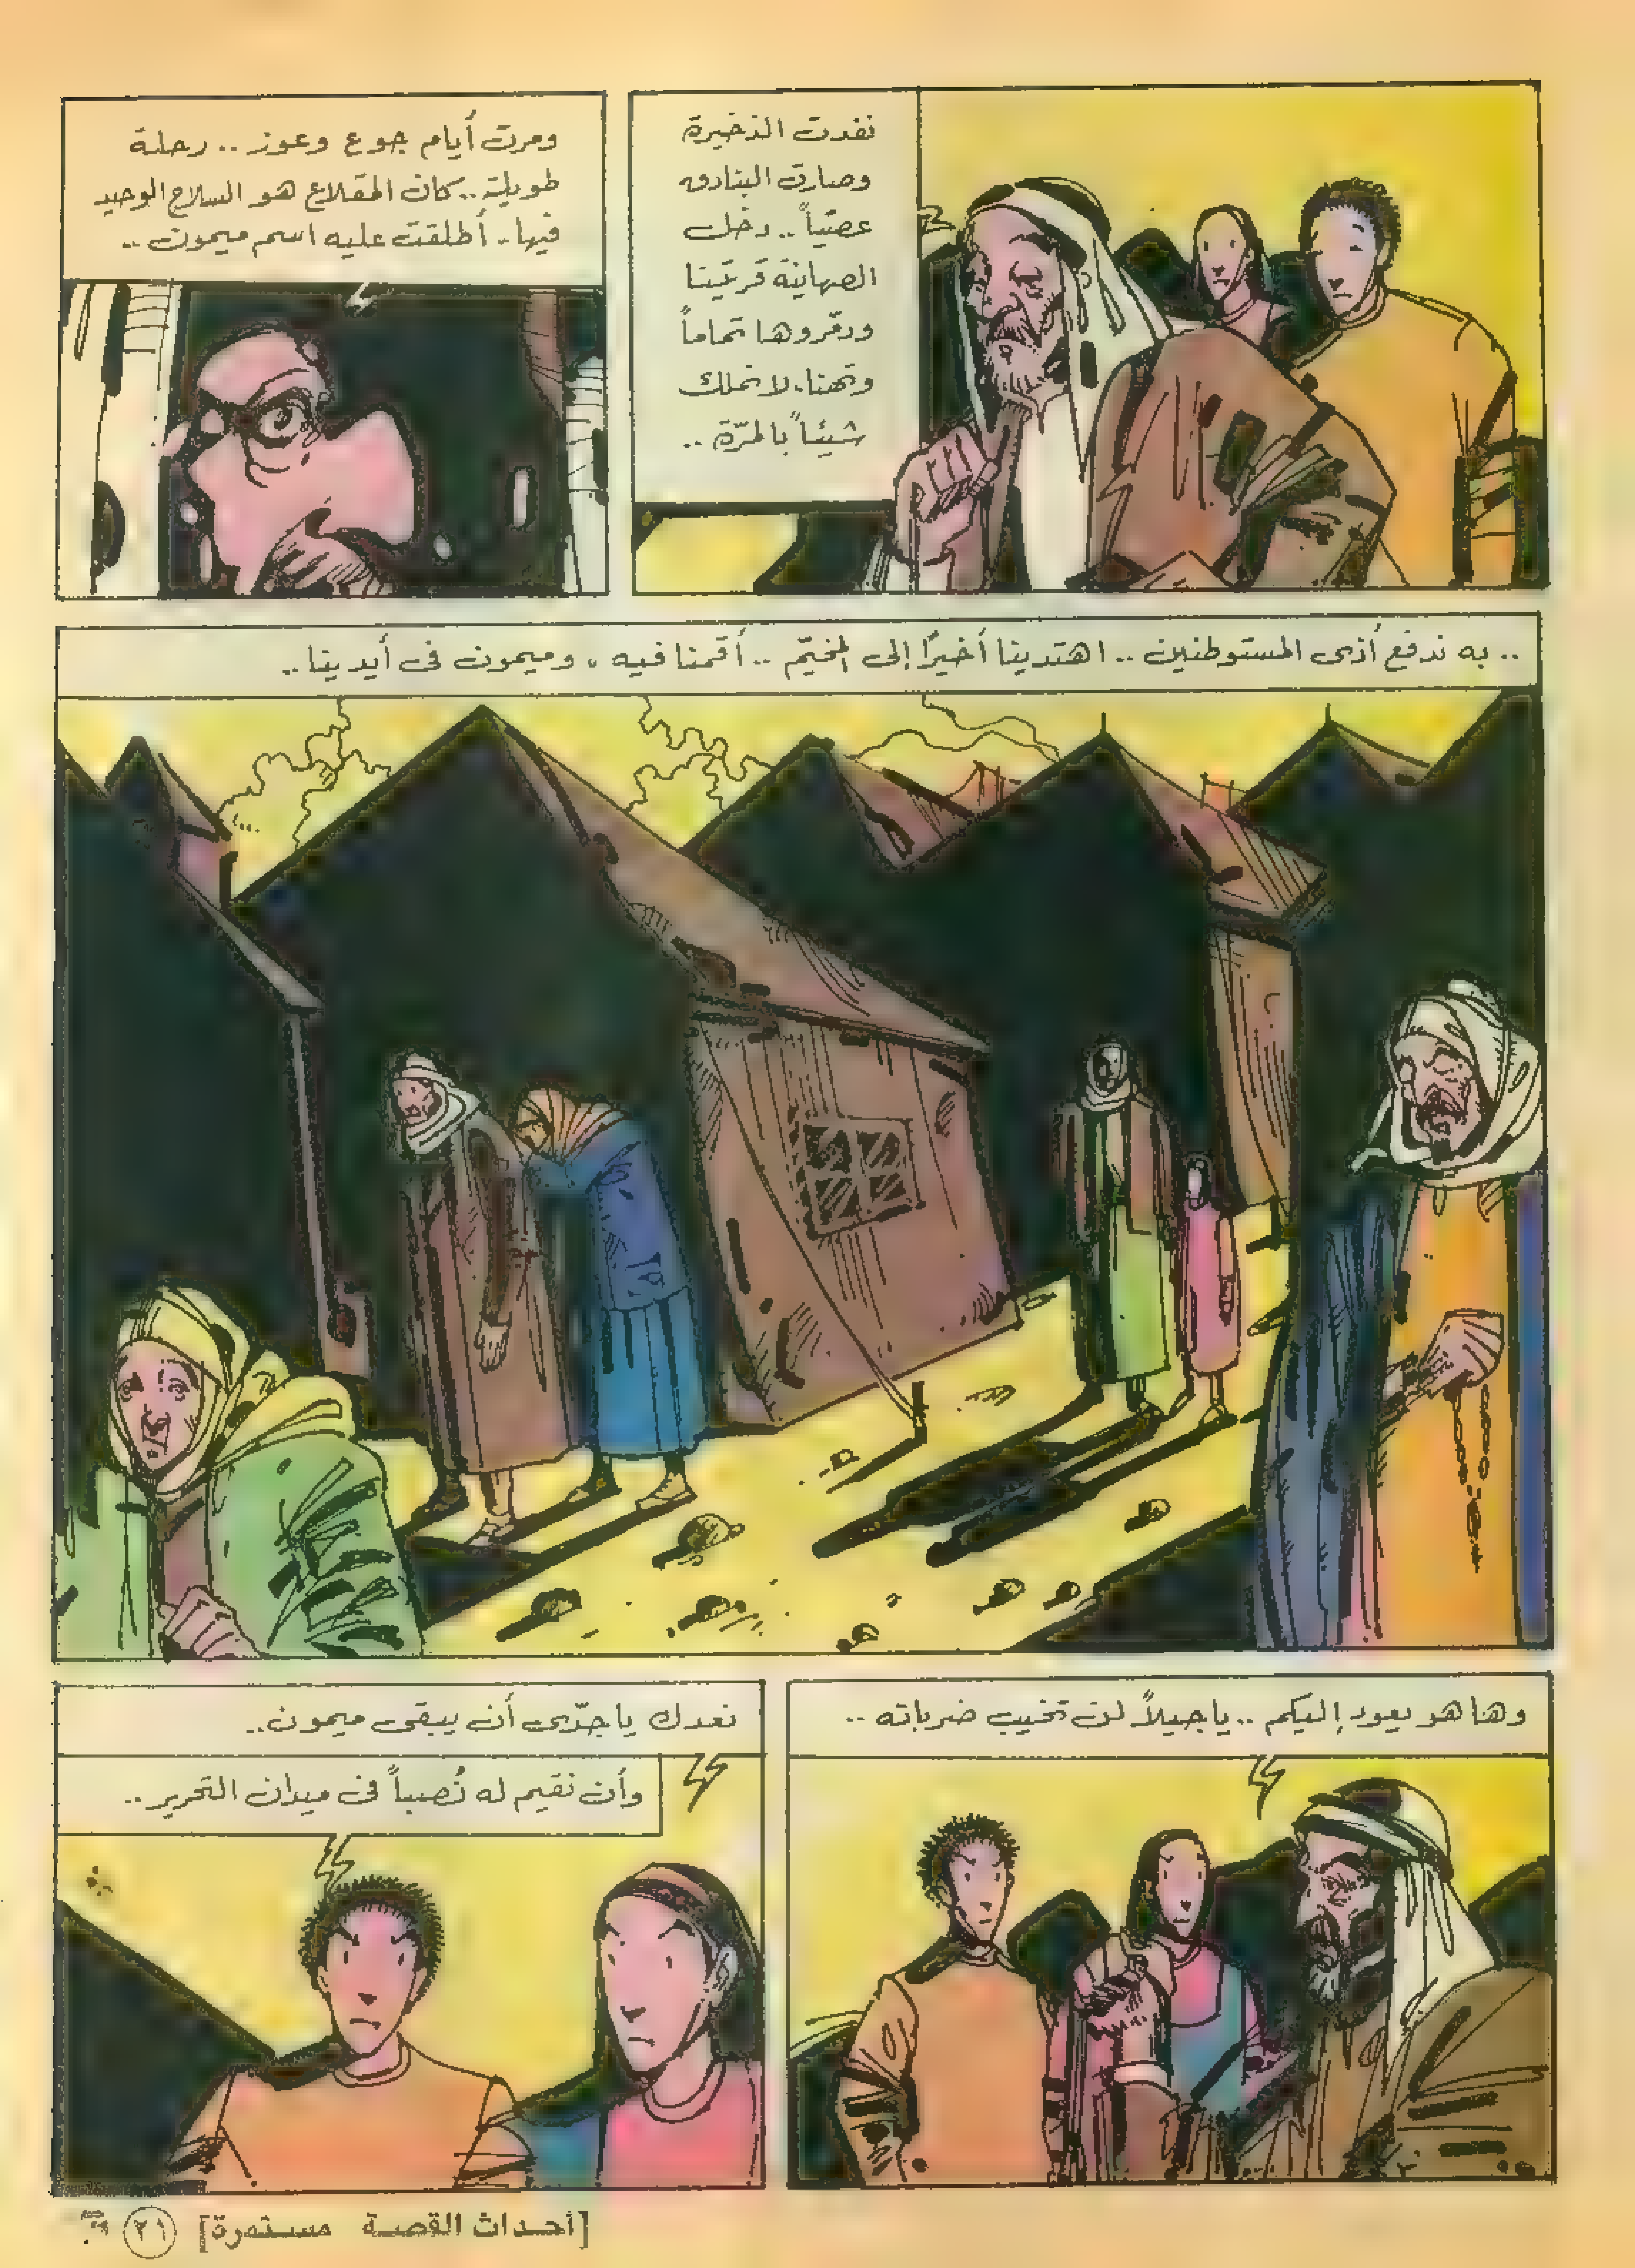 نفدت الذخيرة
وصارت البنادق
عصيّاً .. دخل
الصهاينة قريتنا
ودمّروها تماماً
وتهنا، لا نملك
شيئاً بالمرّة ..
ومرت أيام جوع وعوز .. رحلة
طويلة .. كان المقلاع هو السلاح الوحيد
فيها .. أطلقت عليه اسم ميمون ..
.. به ندفع أذى المستوطنين .. اهتدينا أخيرًا إلى المخيّم .. أقمنا فيه ، وميمون فى أيدينا ..
وها هو يعود إليكم .. يا جيلاً لن تخيب ضرباته ..
نعدك يا جدّى أن يبقى ميمون ..
وأن نقيم له نُصباً فى ميدان التحرير ..
[أحداث القصة مستمرة] ٢١